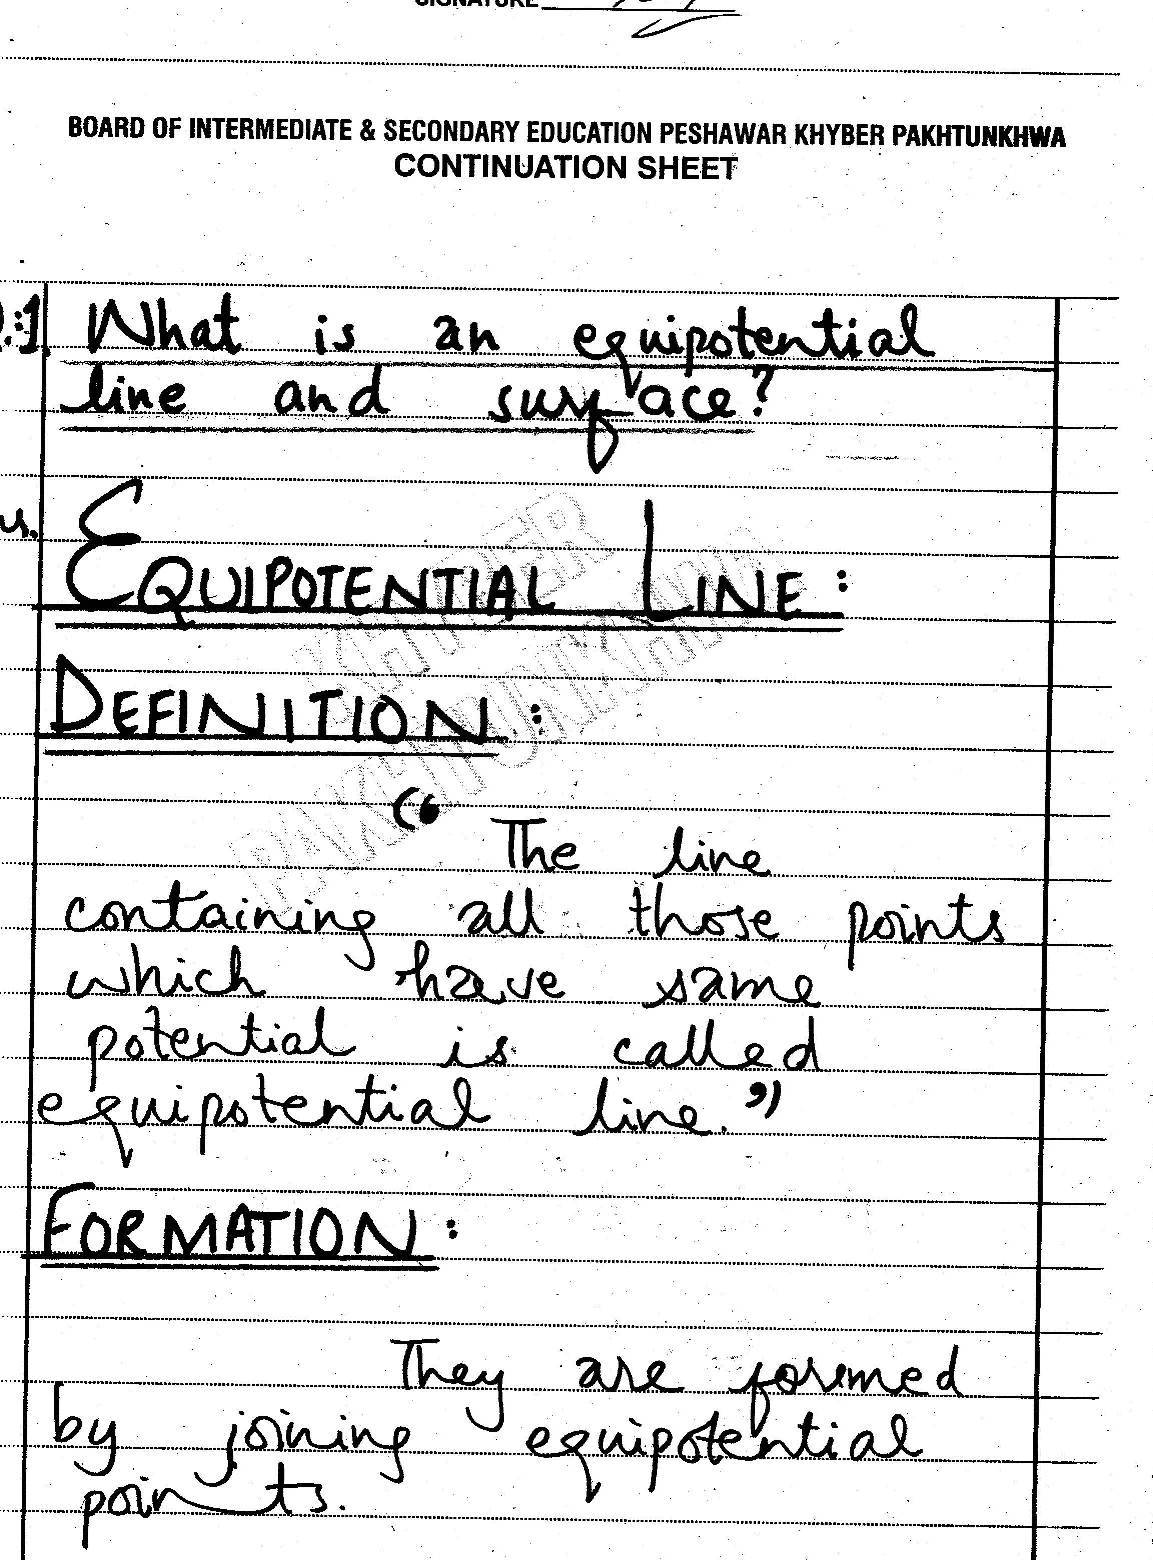 SIGNATURE
BOARD OF INTERMEDIATE & SECONDARY EDUCATION PESHAWAR KHYBER PAKHTUNKHWA
CONTINUATION SHEET
:1 What is an equipotential
line and surface?
EQUIPOTENTIAL LINE:
DEFINITION:
KHYBER
PAKHTUNKHWA
“The line
containing all those points
which have same
potential is called
equipotential line.”
FORMATION:
They are formed
by joining equipotential
points.